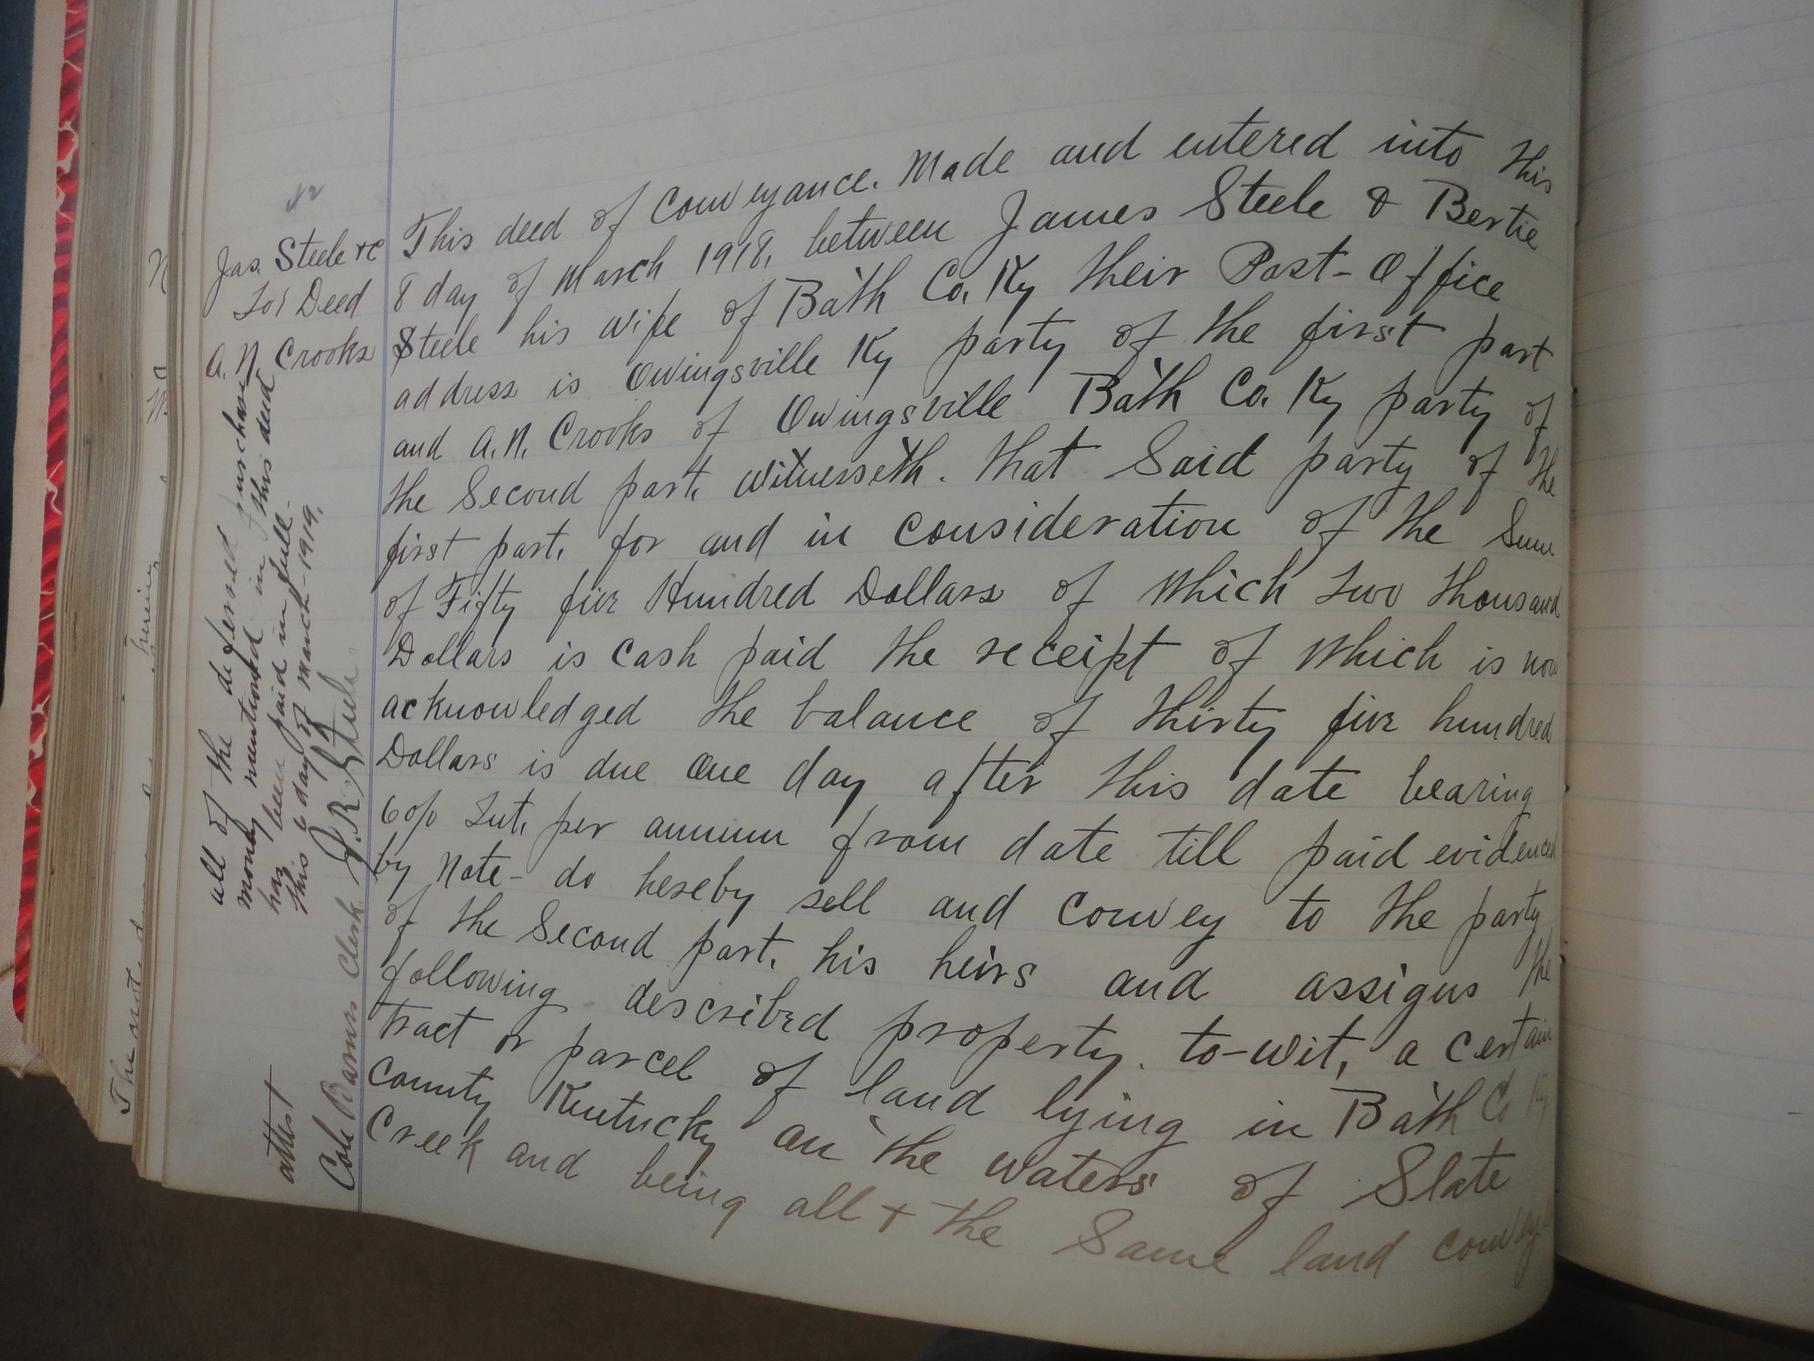 Jas. Steele &c
To/ Deed
A. N. Crooks
all of the deferred purchase
money mentioned in this deed
has been paid in full.
this 6 day of March-1919.
J. R. Steele
attest
Clerk
This deed of Conveyance. Made and entered into this
8 day of March 1918, between James Steele & Bertie
Steele his wife of Bath Co. Ky their Post-Office
address is Owingsville Ky party of the first part
and A. N. Crooks of Owingsville Bath Co. Ky party of
the Second part, witnesseth. That Said party of the
first part, for and in consideration of the Sum
of Fifty five Hundred Dollars of which Two thousand
Dollars is cash paid the receipt of which is now
acknowledged the balance of thirty five hundred
Dollars is due one day after this date bearing
6 o/o Int. per annum from date till paid evidenced
by Note- do hereby sell and convey to the party
of the Second part, his heirs and assigns the
following described property. to-wit, a certain
tract or parcel of land lying in Bath Co Ky
County Kentucky on the waters of Slate
Creek and being all & the Same land convey